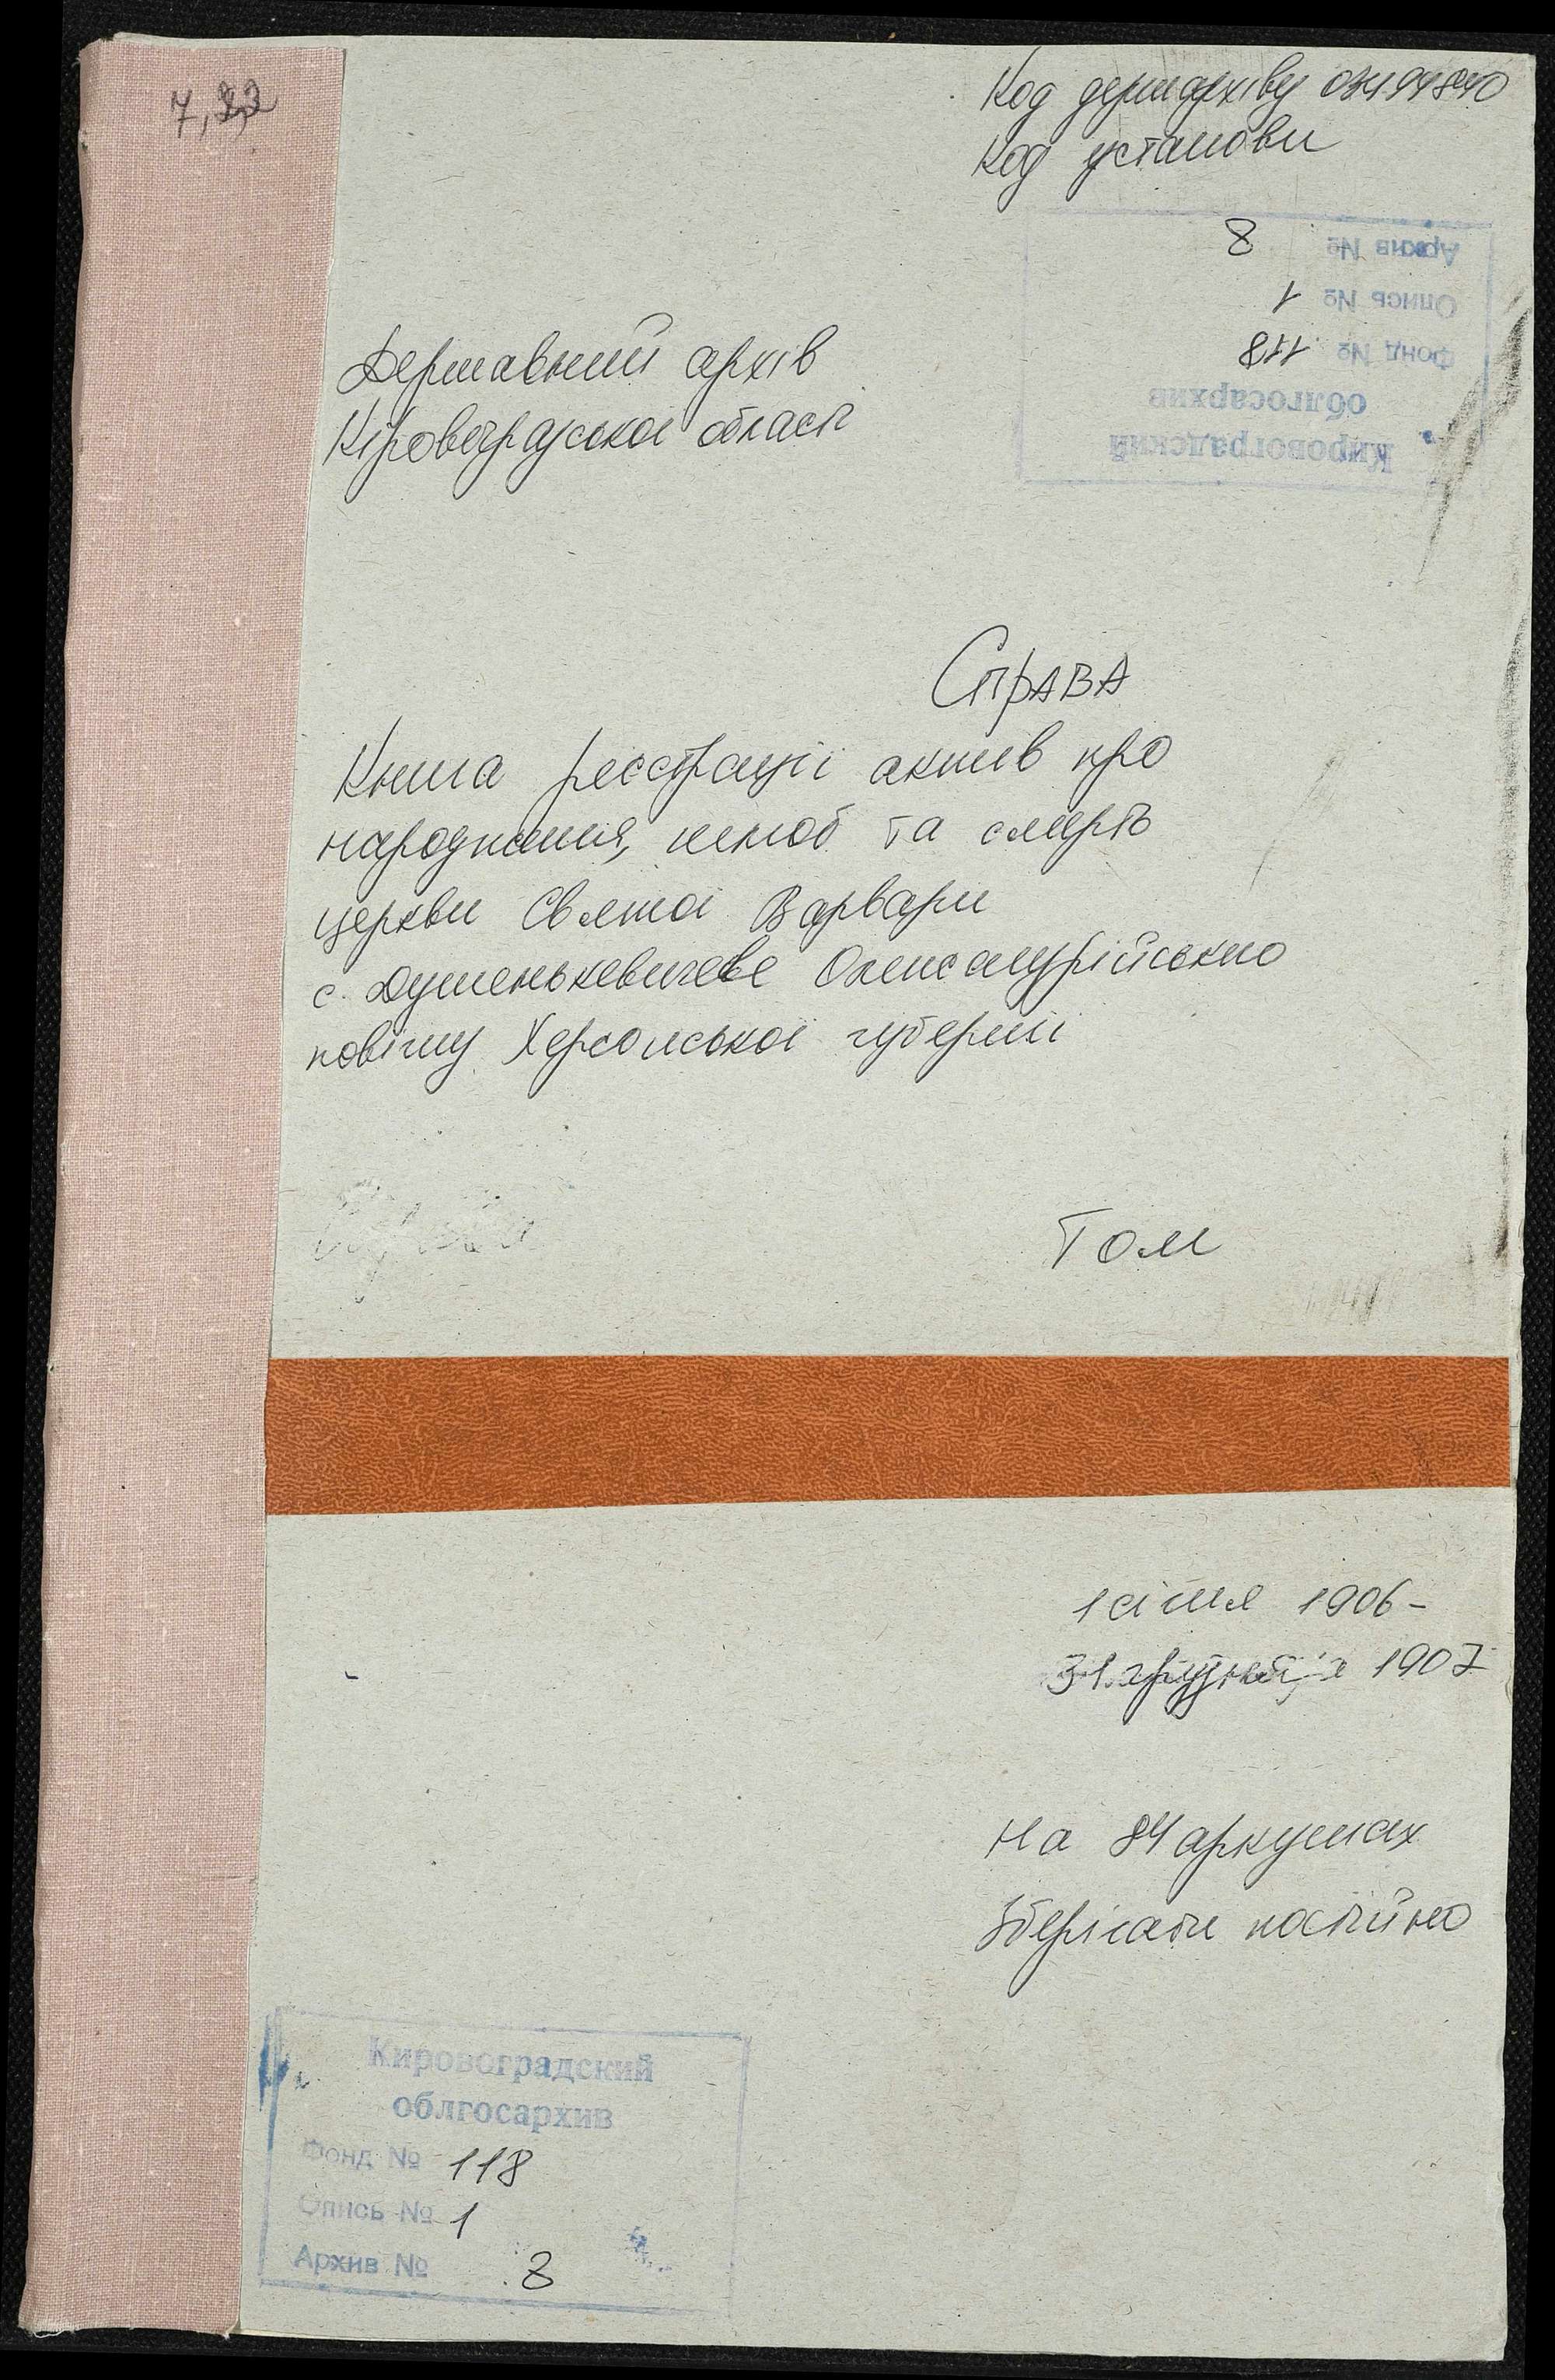 7,22
Код держархіву 03494840
Код установи
Архив № 8
Опись № 1
Фонд № 118
облгосархив
Кировоградский
Державний архів
Кіровоградської області
Справа
Книга реєстрації актів про
народження, шлюб та смерть
церкви Святої Варвари
с. Душенькевичеве Олександрійського
повіту Херсонської губернії
Том
1 січня 1906 -
31 грудня 1907
На 84 аркушах
Зберігати постійно
Кировоградский
облгосархив
Фонд № 118
Опись № 1
Архив № 8